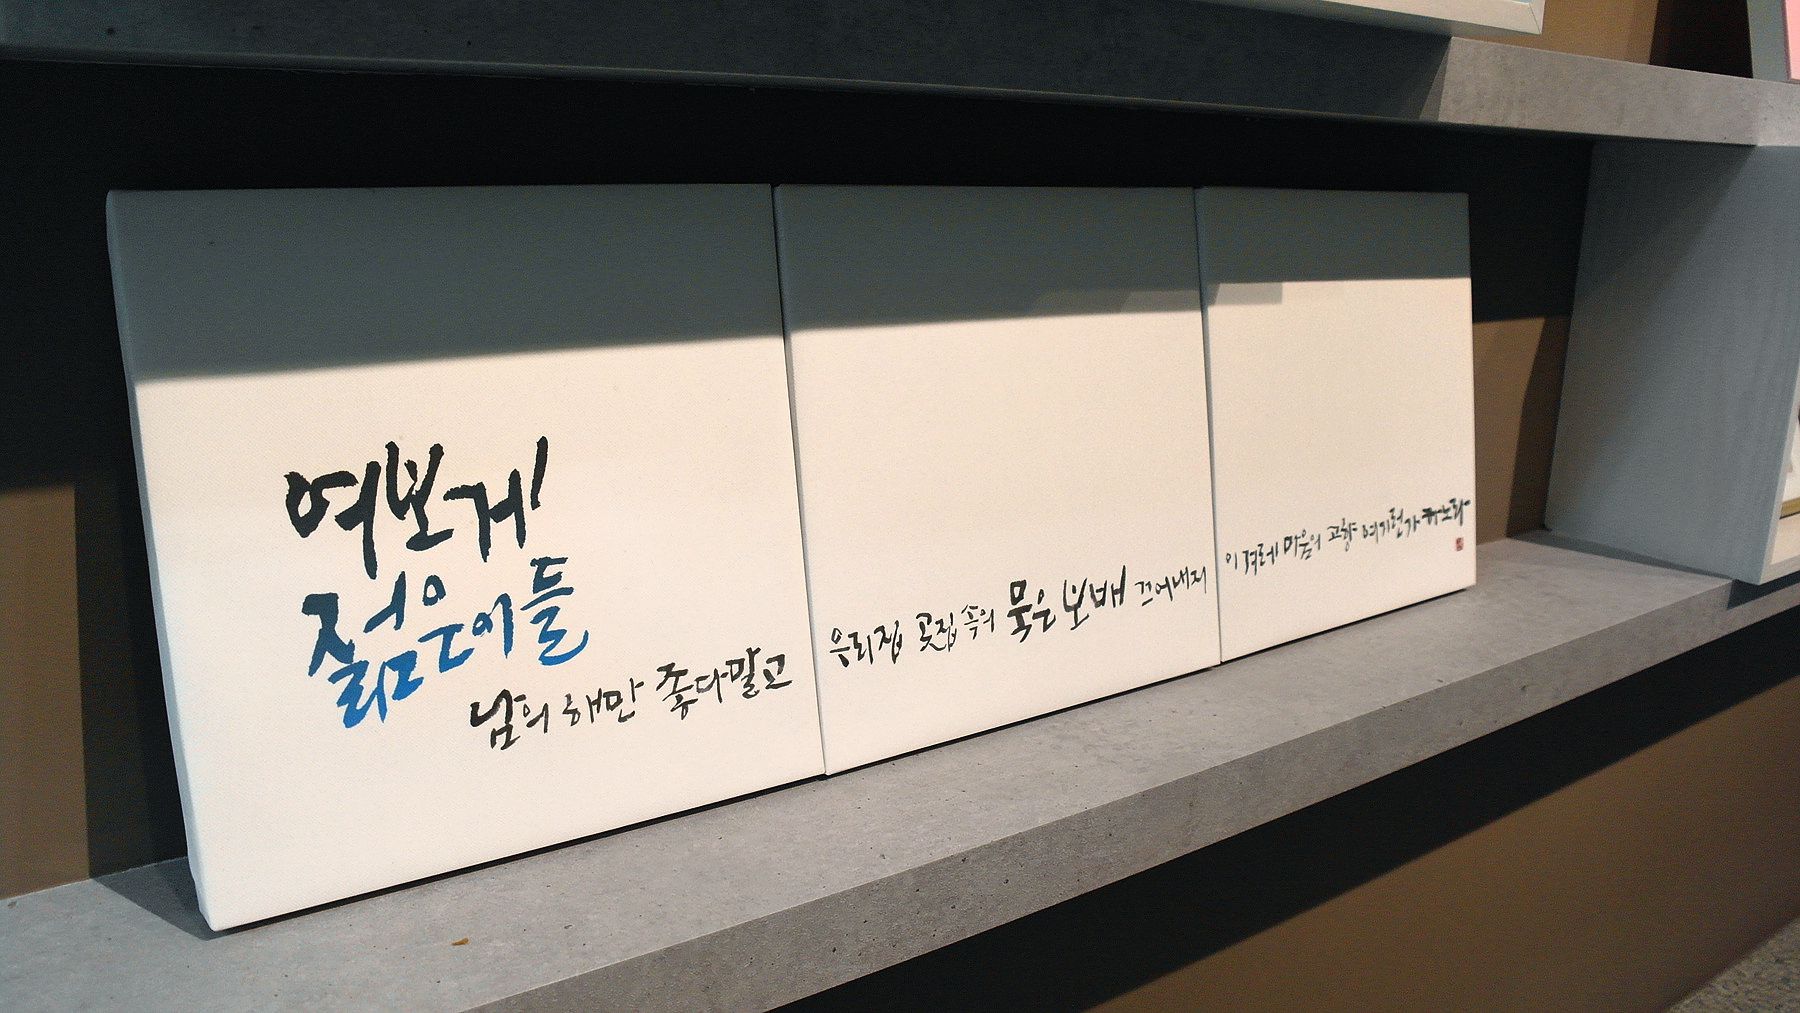 여보게!
젊은이들
남의 해만 좋다말고
우리집 곳집 속의 묵은 보배 끄어내지
이 겨레 마음의 고향 여기런가 하노라